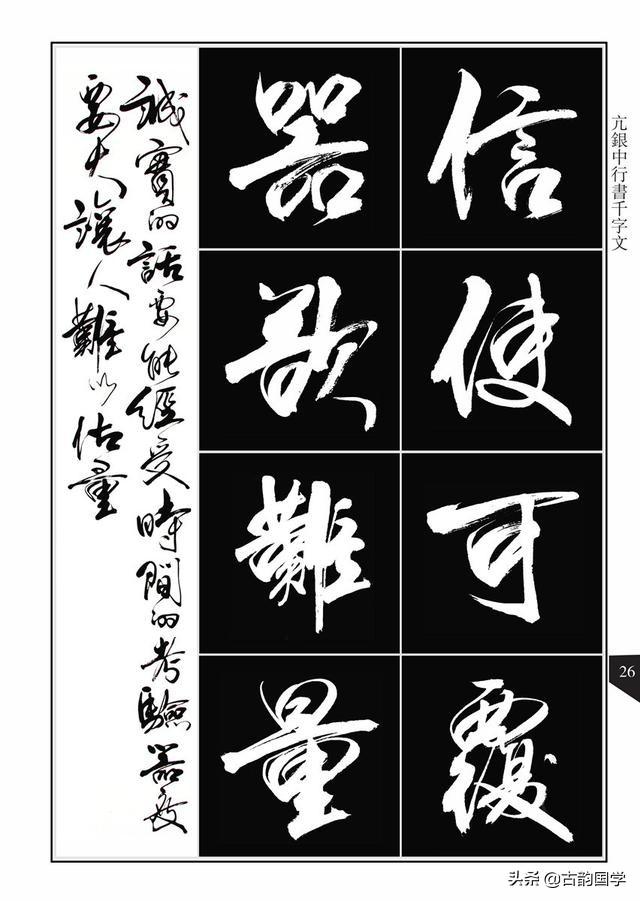 亢銀中行書千字文
信使可覆
器欲難量
誠實的話要能經受時間的考驗器度
要大讓人難以估量
26
头条 @古韵国学